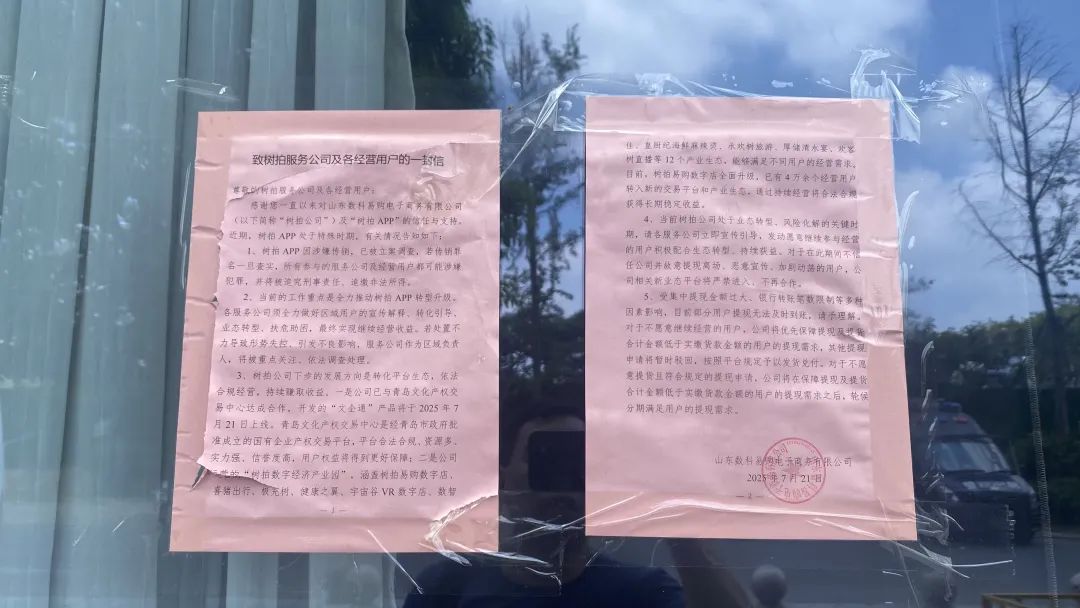 致树拍服务公司及各经营用户的一封信
尊敬的树拍服务公司及各经营用户：
感谢您一直以来对山东数科易购电子商务有限公司
（以下简称“树拍公司”）及“树拍 APP”的信任与支持。
近期，树拍 APP 处于特殊时期，有关情况告知如下：
1、树拍 APP 因涉嫌传销，已被立案调查，若传销罪
名一旦查实，所有参与的服务公司及经营用户都可能涉嫌
犯罪，并将被追究刑事责任、追缴非法所得。
2、当前的工作重点是全力推动树拍 APP 转型升级。
各服务公司须全力做好区域用户的宣传解释、转化引导、
业态转型、扶危助困，最终实现继续经营收益。若处置不
力导致形势失控，引发不良影响，服务公司作为区域负责
人，将被重点关注、依法调查处理。
3、树拍公司下步的发展方向是转化平台生态，依法
合规经营，持续赚取收益。一是公司已与青岛文化产权交
易中心达成合作，开发的“文企通”产品将于 2025 年 7
月 21 日上线。青岛文化产权交易中心是经青岛市政府批
准成立的国有企业产权交易平台，平台合法合规、资源多、
实力强、信誉度高，用户权益将得到更好保障；二是公司
运营的“树拍数字经济产业园”，涵盖树拍易购数字店、
喜猪出行、极充树、健康之翼、宇宙谷 VR 数字店、数智
— 1 —
住、皇厨纪海鲜麻辣烫、承欢树旅游、厚储清水宴、欢客
树直播等 12 个产业生态，能够满足不同用户的经营需求。
目前，树拍易购数字店全面升级，已有 4 万余个经营用户
转入新的交易平台和产业生态，通过持续经营将合法合规
获得长期稳定收益。
4、当前树拍公司处于业态转型、风险化解的关键时
期，请各服务公司立即宣传引导，发动愿意继续参与经营
的用户积极配合生态转型、持续获益。对于在此期间不信
任公司并故意提现离场、恶意宣传、加剧动荡的用户，公
司相关新业态平台将严禁进入、不再合作。
5、受集中提现金额过大、银行转账笔数限制等多种
因素影响，目前部分用户提现无法及时到账，请予理解。
对于不愿意继续经营的用户，公司将优先保障提现及提货
合计金额低于实缴货款金额的用户的提现需求，其他提现
申请将暂时驳回，按照平台规定予以发货兑付。对于不愿
意提货且符合规定的提现申请，公司将在保障提现及提货
合计金额低于实缴货款金额的用户的提现需求之后，轮候
分期满足用户的提现需求。
山东数科易购电子商务有限公司
2025 年 7 月 21 日
— 2 —